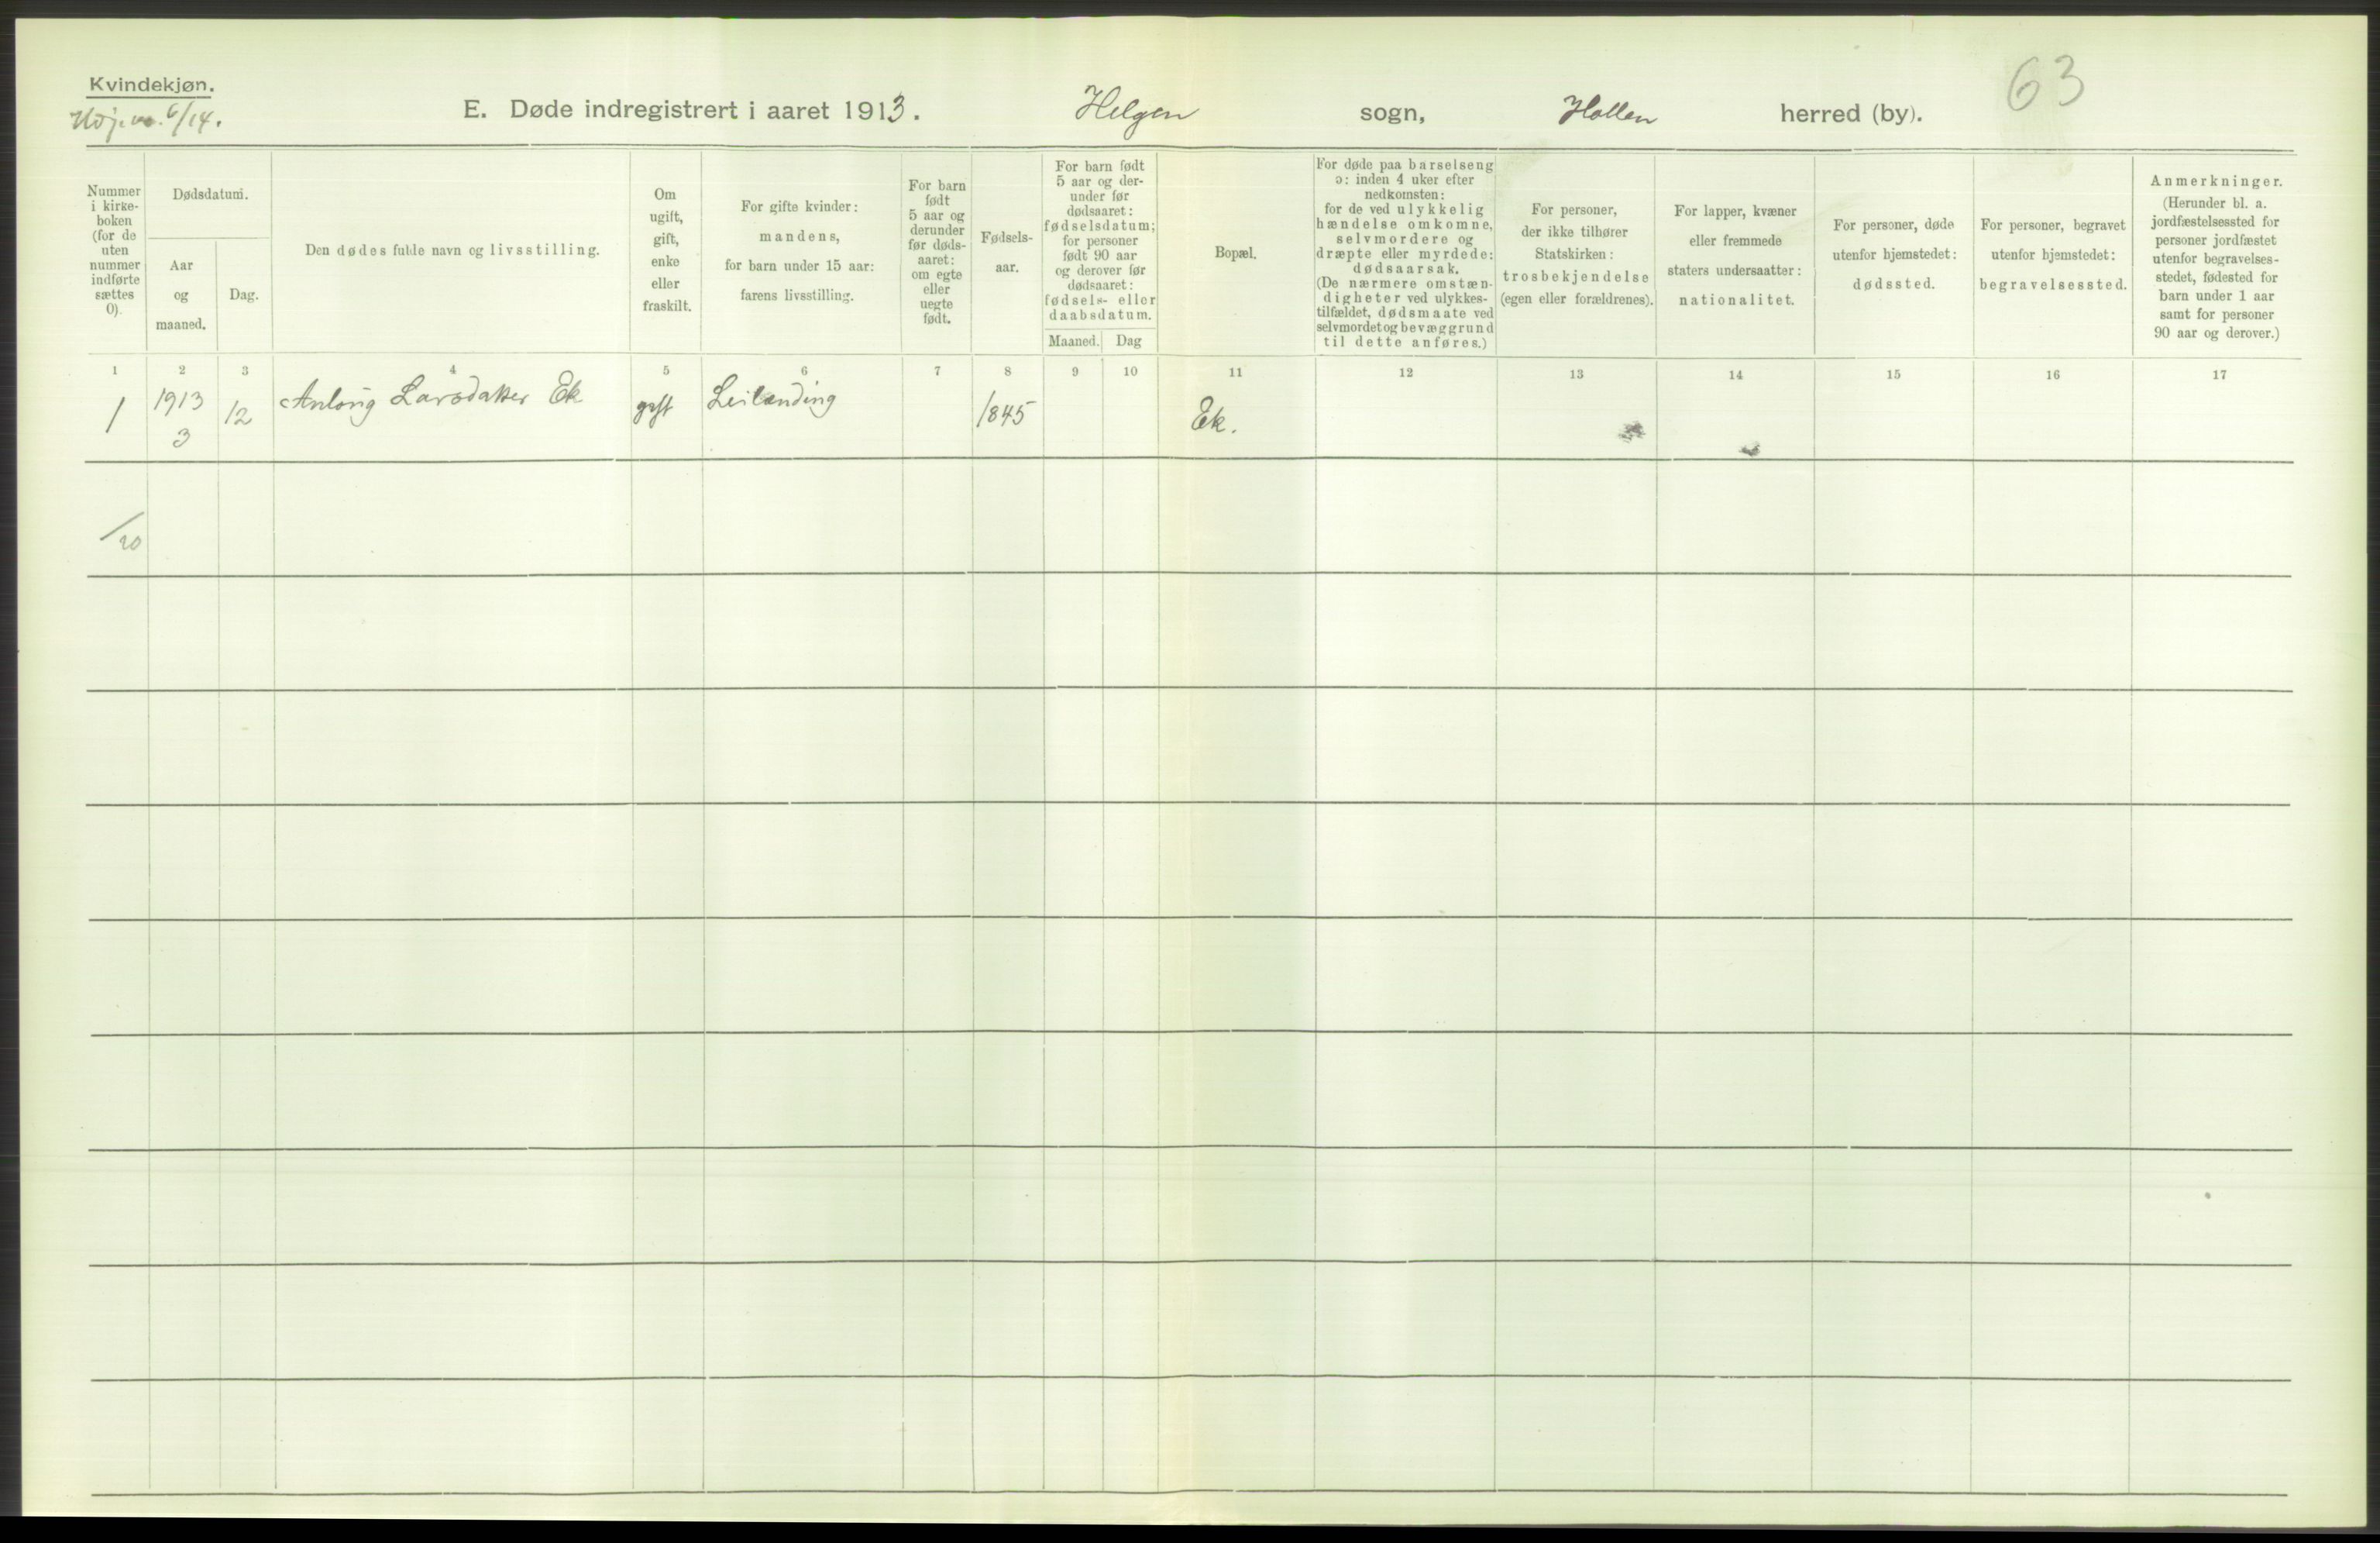 Kvindekjøn.
6/14.
E. Døde indregistrert i aaret 1913. Helgen sogn, Hollen herred (by). 63
Nummer i kirke-boken (for de uten nummer indførte sættes 0).
Dødsdatum.
Aar og maaned.
Dag.
Den dødes fulde navn og livsstilling.
Om ugift, gift, enke eller fraskilt.
For gifte kvinder: mandens, for barn under 15 aar: farens livsstilling.
For barn født 5 aar og derunder før døds-aaret: om egte eller uegte født.
Fødsels-aar.
For barn født 5 aar og der-under før dødsaaret: fødselsdatum; for personer født 90 aar og derover før dødsaaret: fødsels- eller daabsdatum.
Maaned. Dag
Bopæl.
For døde paa barselseng ɔ: inden 4 uker efter nedkomsten: for de ved ulykkelig hændelse omkomne, selvmordere og dræpte eller myrdede: dødsaarsak. (De nærmere omstæn-digheter ved ulykkes-tilfældet, dødsmaate ved selvmordet og bevæggrund til dette anføres.)
For personer, der ikke tilhører Statskirken: trosbekjendelse (egen eller forældrenes).
For lapper, kvæner eller fremmede staters undersaatter: nationalitet.
For personer, døde utenfor hjemstedet: dødssted.
For personer, begravet utenfor hjemstedet: begravelsessted.
Anmerkninger. (Herunder bl. a. jordfæstelsessted for personer jordfæstet utenfor begravelses-stedet, fødested for barn under 1 aar samt for personer 90 aar og derover.)
1 2 3 4 5 6 7 8 9 10 11 12 13 14 15 16 17
1 1913 3 12 Anlaug Larsdatter Ek gift Leilending 1845 Ek.
/20